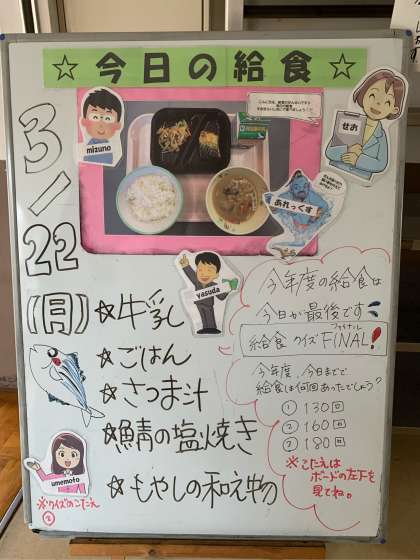 ☆今日の給食☆
せお
mizuno
あれっくす!
yasuda
3/22
(月)
☆牛乳
☆ごはん
☆さつま汁
☆鯖の塩焼き
☆もやしの和え物
今年度の給食は
今日が最後です
給食クイズFINAL!
ファイナル
今年度、今日までで
給食は何回あったでしょう?
① 130回
② 160回
② 180回
※こたえは
ボードの左下を
見てね。
umemoto
※クイズのこたえ
②